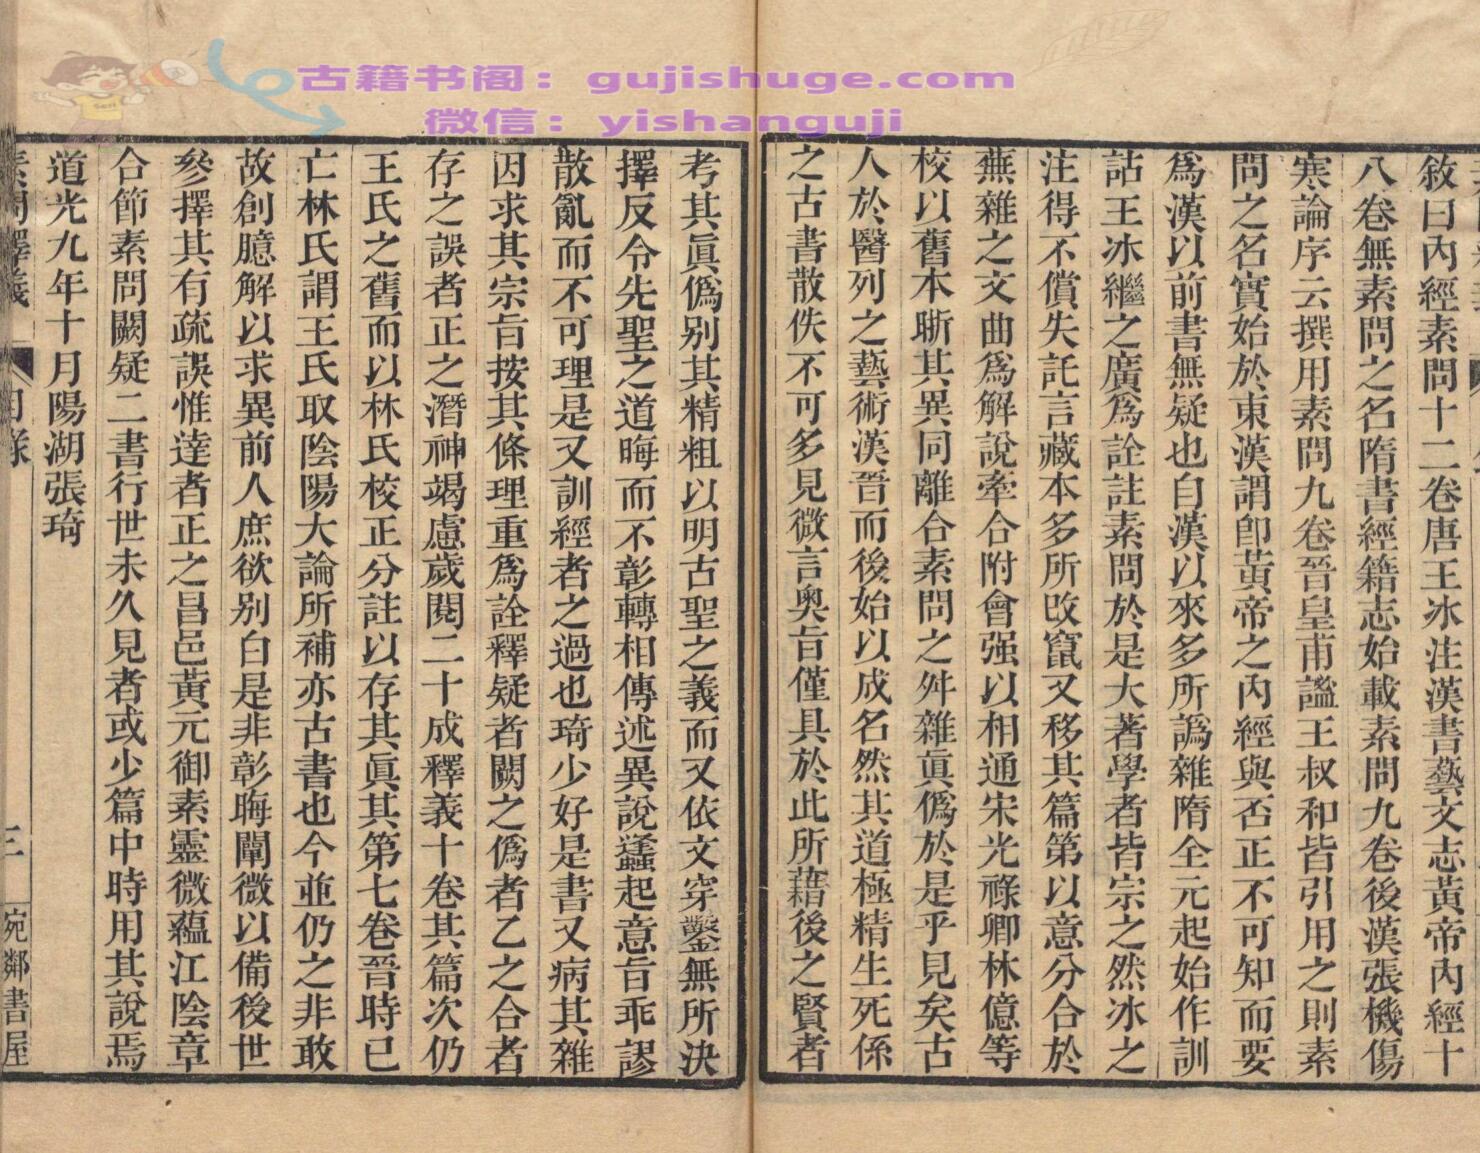 古籍书阁：gujishuge.com
微信：yishanguji
敘曰內經素問十二卷唐王冰注漢書藝文志黃帝內經十
八卷無素問之名隋書經籍志始載素問九卷後漢張機傷
寒論序云撰用素問九卷晉皇甫謐王叔和皆引用之則素
問之名實始於東漢謂卽黃帝之內經與否正不可知而要
爲漢以前書無疑也自漢以來多所譌雜隋全元起始作訓
詁王冰繼之廣爲詮註素問於是大著學者皆宗之然冰之
注得不償失託言藏本多所改竄又移其篇第以意分合於
蕪雜之文曲爲解說牽合附會强以相通宋光祿卿林億等
校以舊本晰其異同離合素問之舛雜眞僞於是乎見矣古
人於醫列之藝術漢晉而後始以成名然其道極精生死係
之古書散佚不可多見微言奥旨僅具於此所藉後之賢者
考其眞僞别其精粗以明古聖之義而又依文穿鑿無所決
擇反令先聖之道晦而不彰轉相傳述異說蠭起意旨乖謬
散亂而不可理是又訓經者之過也琦少好是書又病其雜
因求其宗旨按其條理重爲詮釋疑者闕之僞者乙之合者
存之誤者正之潛神竭慮歲閱二十成釋義十卷其篇次仍
王氏之舊而以林氏校正分註以存其眞其第七卷晉時已
亡林氏謂王氏取陰陽大論所補亦古書也今並仍之非敢
故創臆解以求異前人庶欲别白是非彰晦闡微以備後世
參擇其有疏誤惟達者正之昌邑黃元御素靈微蘊江陰章
合節素問闕疑二書行世未久見者或少篇中時用其說焉
道光九年十月陽湖張琦
素問釋義 目錄 三 宛鄰書屋